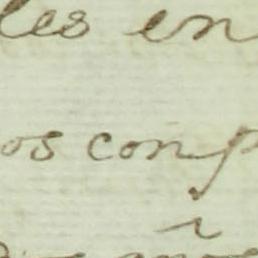 les en
os comp